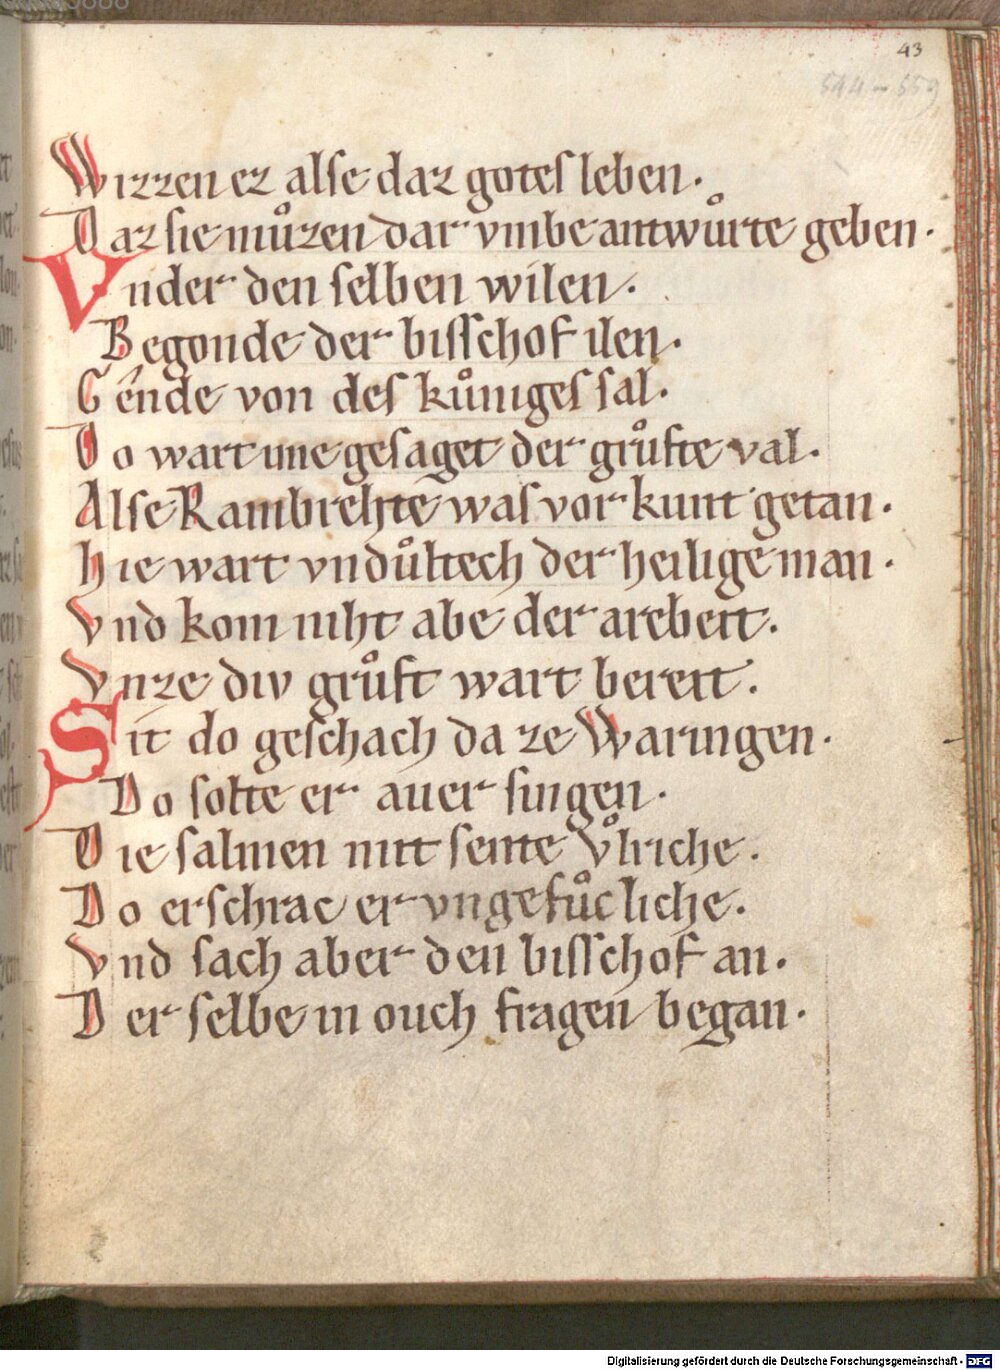 43
544 – 559
Wizzen ez alse daz gotes leben.
Daz sie muͦzen dar vmbe antwuͦrte geben.
Vnder den selben wilen.
Begonde der bisschof ilen.
Gênde von des kuͦniges sal.
Do wart ime gesaget der gruͦfte val.
Alse Rambrehte was vor kunt getan.
Hie wart vnduͦltech der heilige man.
Vnd kom niht abe der arebeit.
Vnze div gruͦft wart bereit.
Sit do geschach da ze Waringen.
Do solte er auer singen.
Die salmen mit sente Vͦlriche.
Do erschrac er vngefuͦcliche.
Vnd sach aber den bisschof an.
Der selbe in ouch fragen began.
Digitalisierung gefördert durch die Deutsche Forschungsgemeinschaft - DFG